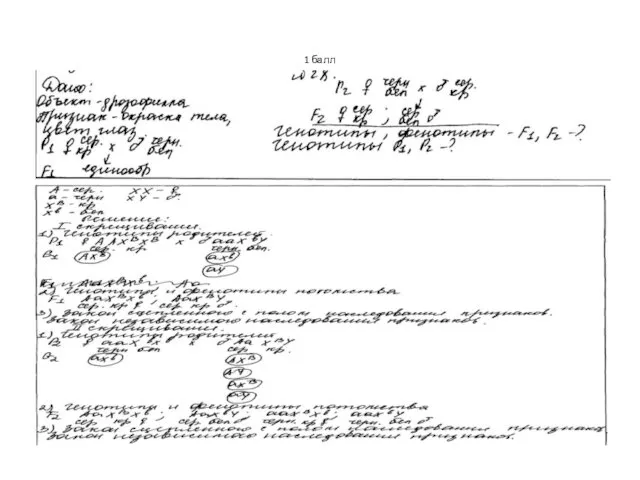 1 балл
Дано:
Объект - дрозофилла
Признак - окраска тела,
цвет глаз
P1 ♀ сер. кр × ♂ черн. бел
↓
F1 единообр
P2 ♀ черн бел × ♂ сер. кр
↓
F2 ♀ сер. кр ; сер бел ♂
Генотипы, фенотипы - F1, F2 -?
Генотипы P1, P2 -?
A - сер. XX - ♀
a - черн XY - ♂
X^B - кр
X^b - бел
Решение:
I скрещивание.
1) Генотипы родителей.
P1 ♀ AAX^BX^B × ♂ aaX^bY
сер. кр черн. бел.
G1 AX^B aX^b
aY
2) Генотипы и фенотипы потомства
F1 AaX^BX^b ; AaX^BY
сер. кр ♀ ; сер кр ♂.
3) Закон сцепленного с полом наследования признаков.
Закон независимого наследования признаков.
II скрещивание.
1) Генотипы родителей.
P2 ♀ aaX^bX^b × ♂ AaX^BY
черн бел сер кр.
G2 aX^b AX^B
AY
aX^B
aY
2) Генотипы и фенотипы потомства
F2 AaX^BX^b ; AaX^bY ; aaX^BX^b ; aaX^bY
сер кр ♀ ; сер. бел ♂ черн. кр ♀ ; черн. бел ♂
3) Закон сцепленного с полом наследования признаков
Закон независимого наследования признаков.